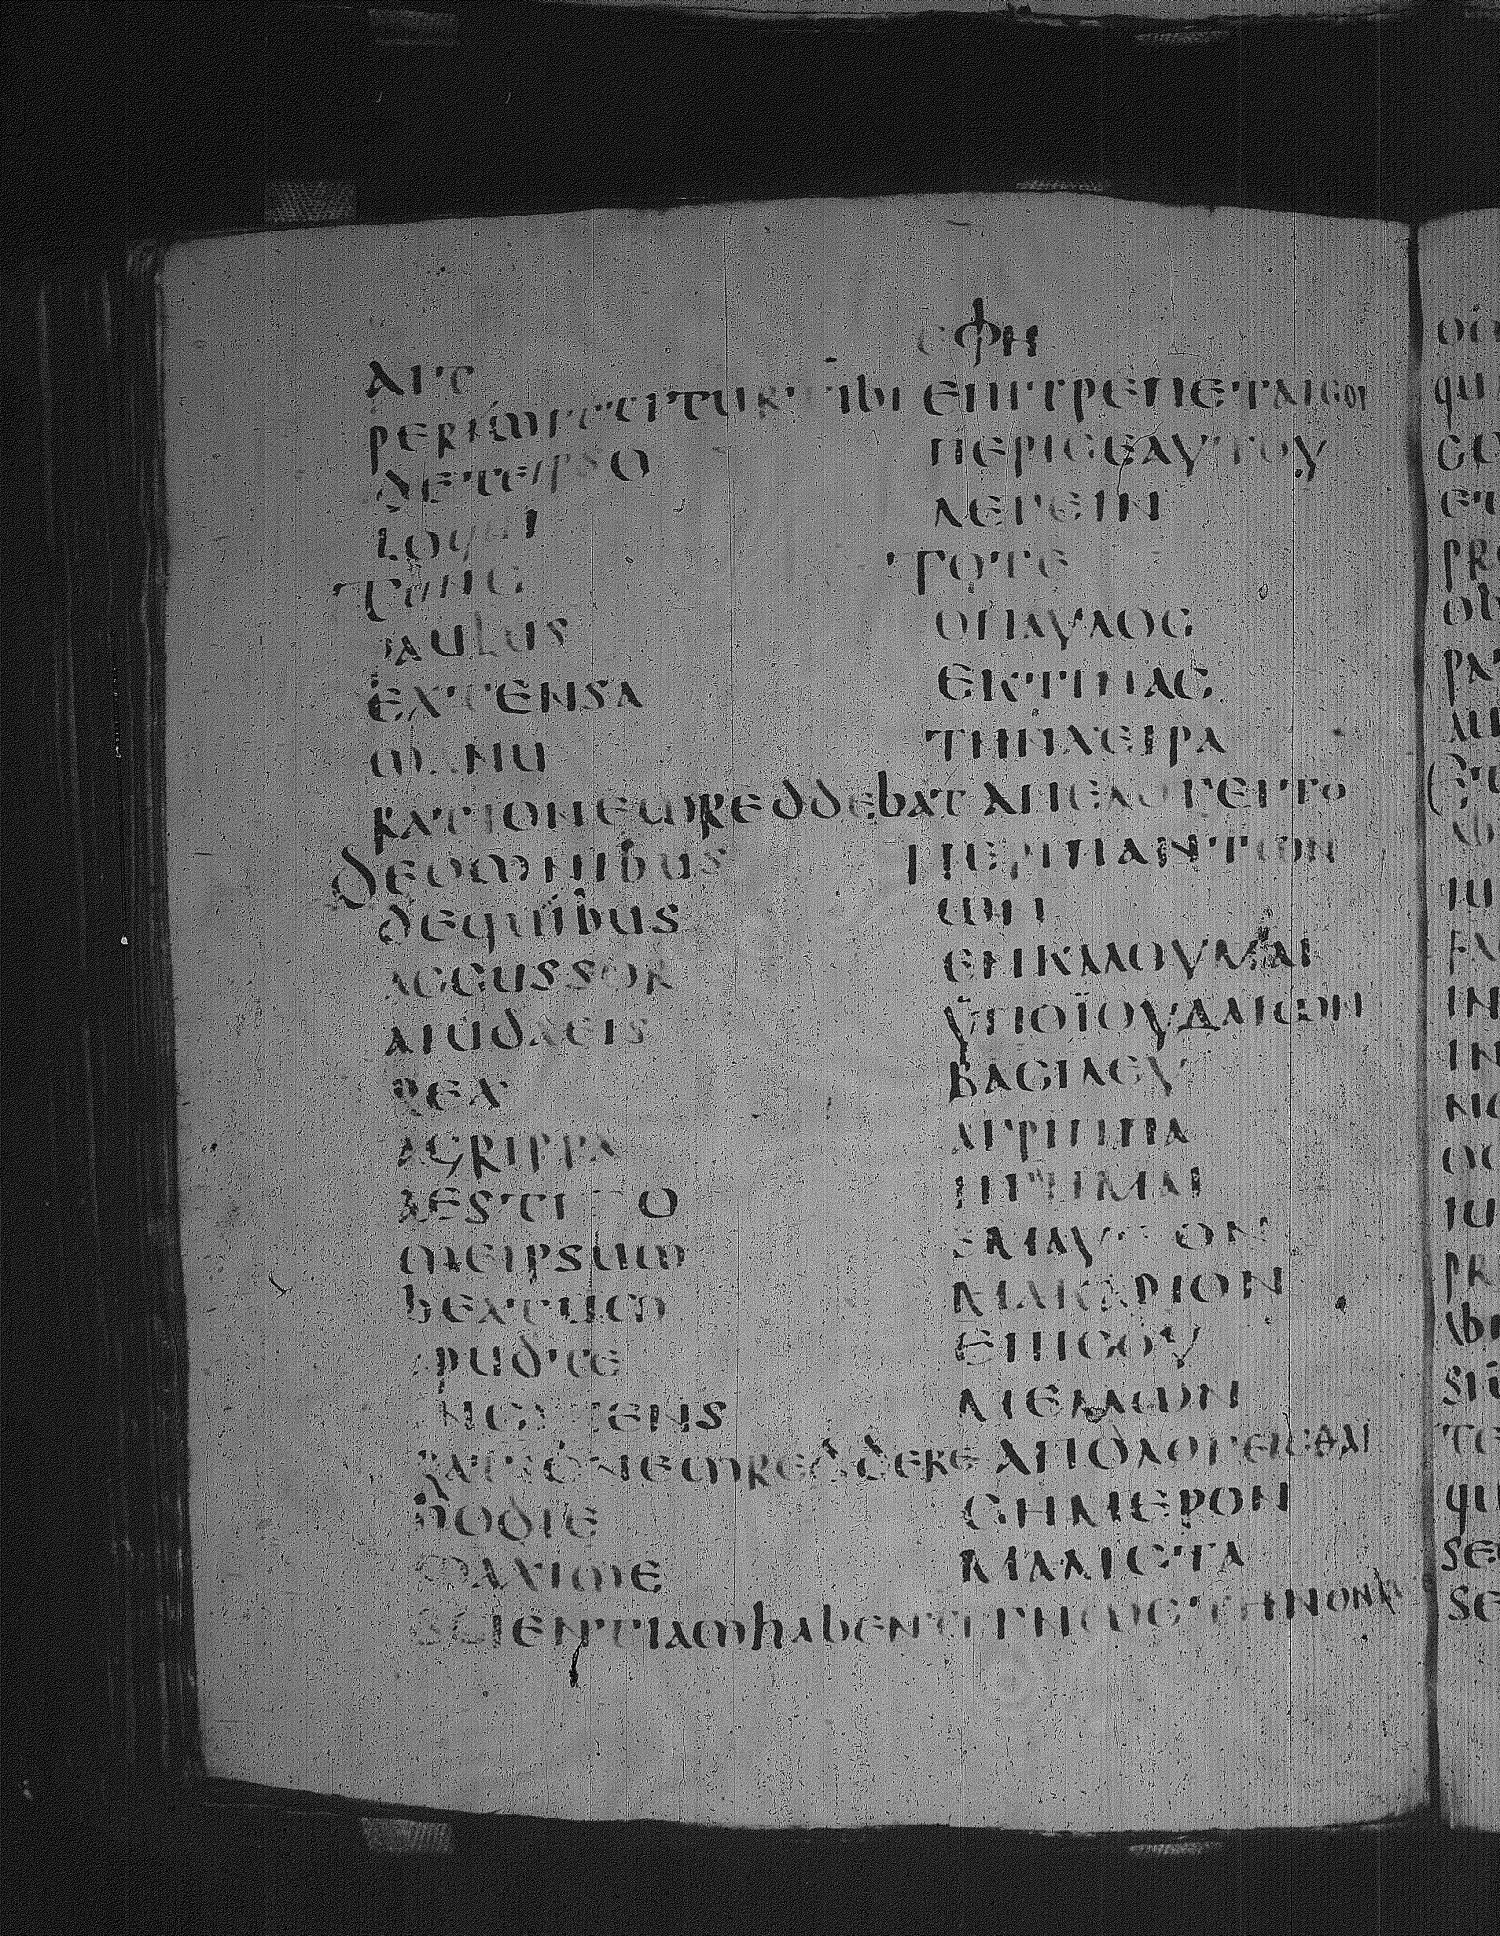 ΕΦΗ
AIT
PERIMITTITUR TIBI ΕΠΙΤΡΕΠΕΤΑΙCΟΙ
DETEIPSO ΠΕΡΙCΕΑΥΤΟΥ
LOQUI ΛΕΓΕΙΝ
TUNC ΤΟΤΕ
PAULUS ΟΠΑΥΛΟC
EXTENSA ΕΚΤΙΝΑC
MANU ΤΗΝΧΕΙΡΑ
RATIONEMREDDEBAT ΑΠΕΛΟΓΕΙΤΟ
DEOMNIBUS ΠΕΡΙΠΑΝΤΩΝ
DEQUIBUS ΩΝ
ACCUSSOR ΕΝΚΑΛΟΥΜΑΙ
AIUDAEIS ΫΠΟΪΟΥΔΑΙΩΝ
REX ΒΑCΙΛΕΥ
AGRIPPA ΑΓΡΙΠΠΑ
AESTIMO ΗΓΗΜΑΙ
MEIPSUM ΕΜΑΥΤΟΝ
BEATUM ΜΑΚΑΡΙΟΝ
APUDTE ΕΠΙCΟΥ
INCIPIENS ΜΕΛΛΩΝ
RATIONEMREDDERE ΑΠΟΛΟΓΕΙCΘΑΙ
HODIE CΗΜΕΡΟΝ
MAXIME ΜΑΛΙCΤΑ
SCIENTIAMHABENTI ΓΝΩCΤΗΝΟΝΤΑ